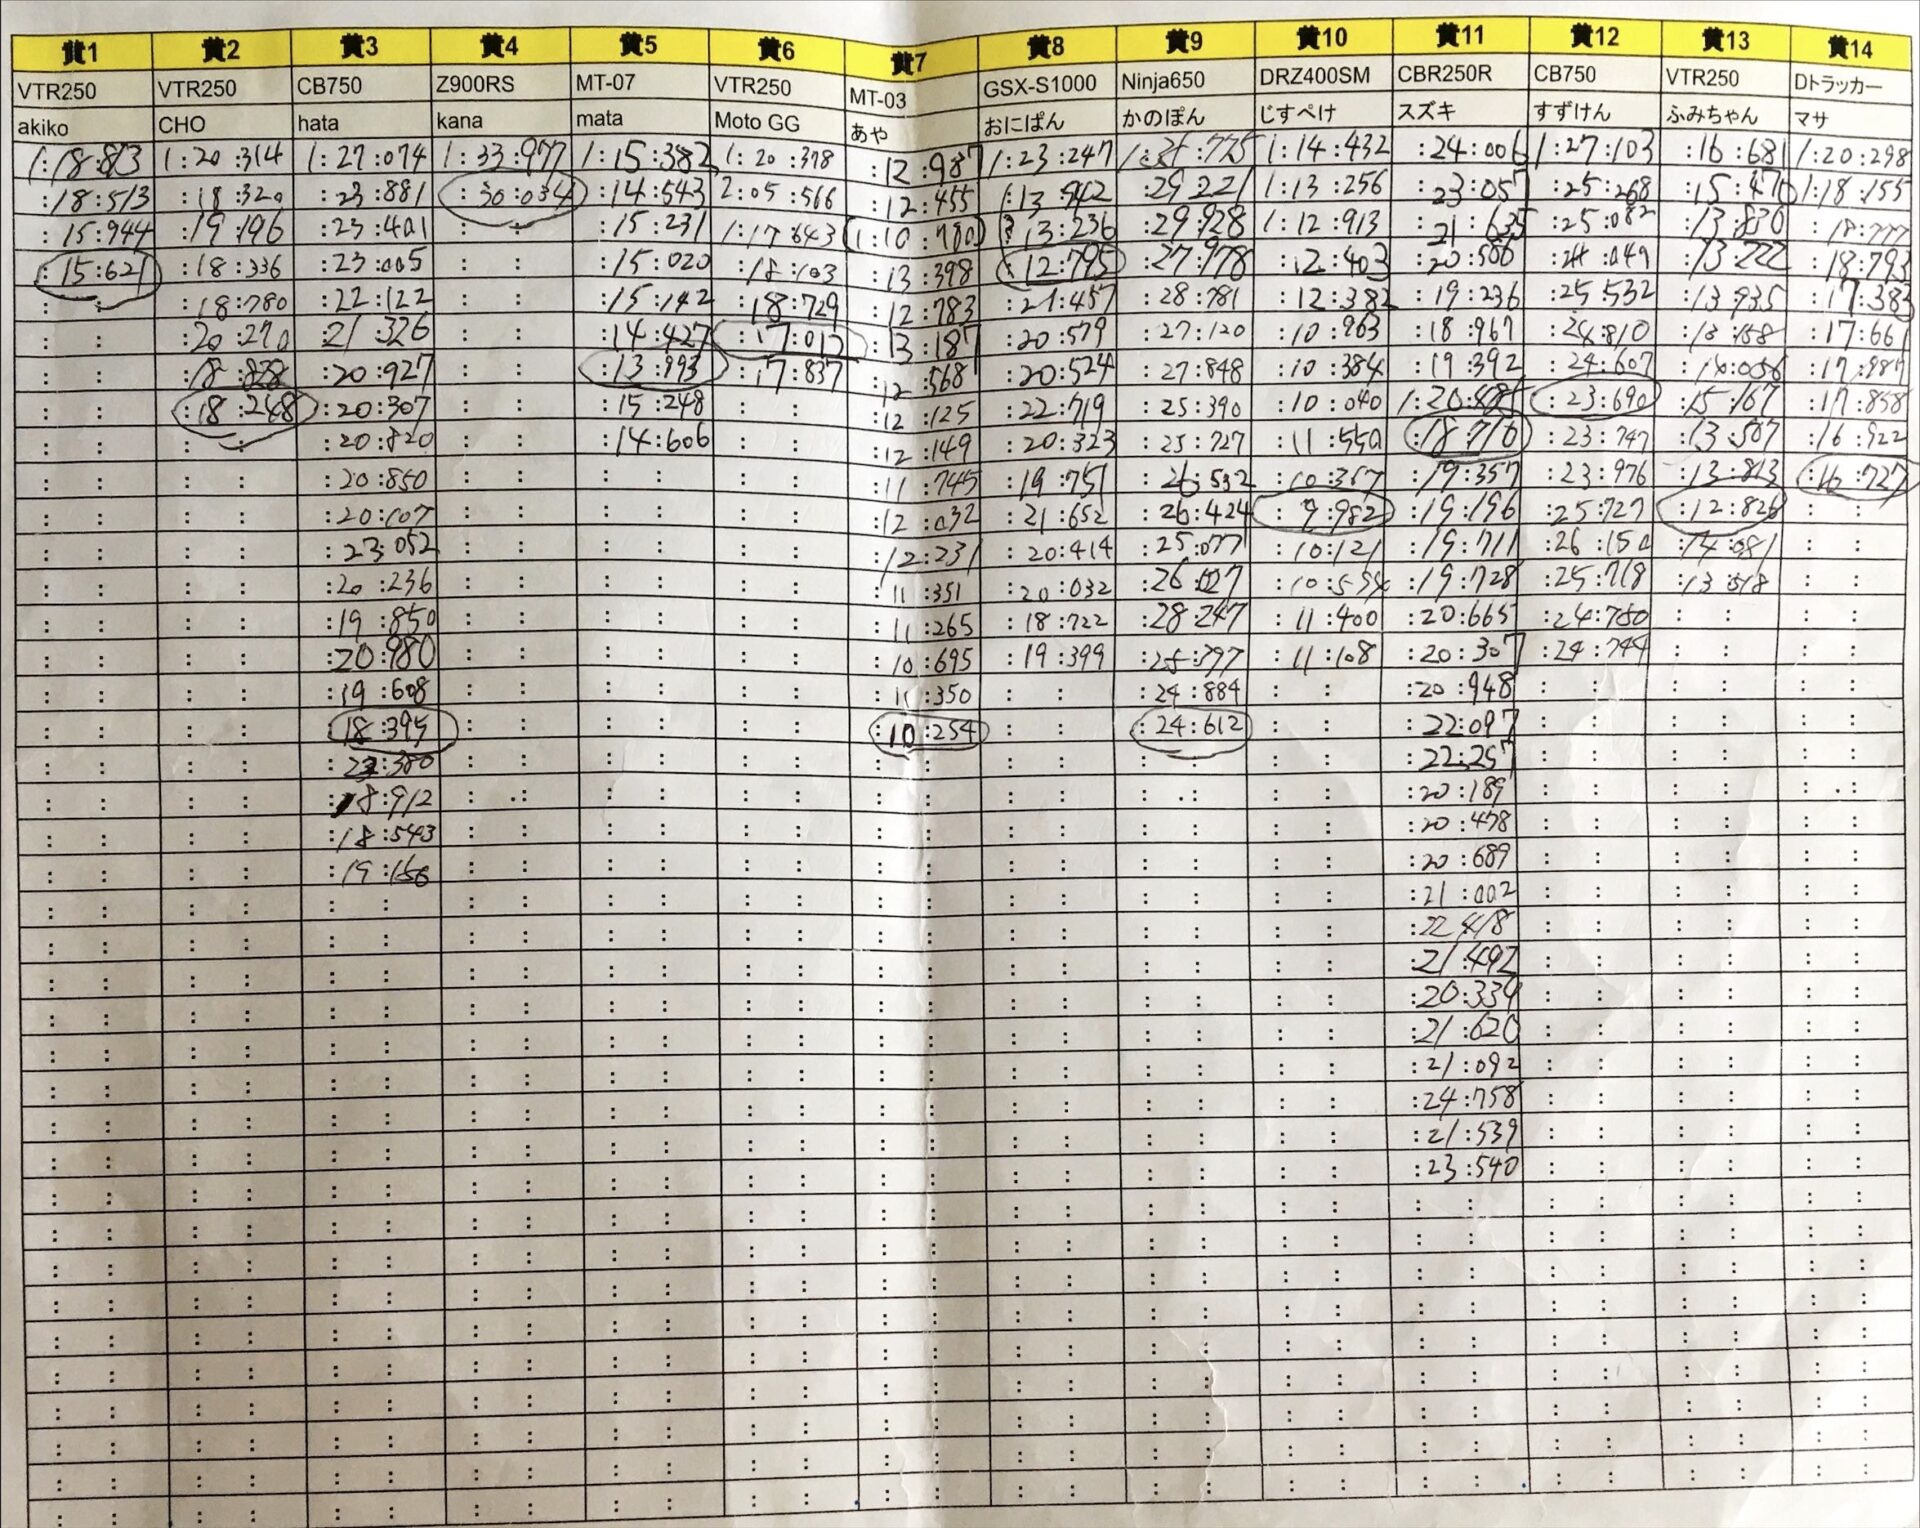 黄1 黄2 黄3 黄4 黄5 黄6 黄7 黄8 黄9 黄10 黄11 黄12 黄13 黄14
VTR250 VTR250 CB750 Z900RS MT-07 VTR250 MT-03 GSX-S1000 Ninja650 DRZ400SM CBR250R CB750 VTR250 Dトラッカー
akiko CHO hata kana mata Moto GG あや おにぱん かのぽん じすぺけ スズキ すずけん ふみちゃん マサ
1:18:813 1:20:314 1:27:074 1:33:977 1:15:382 1:20:378 :12:987 1:23:247 1:14:432 :24:006 1:27:103 :16:681 1:20:298
:18:513 :18:320 :23:881 :30:034 :14:543 2:05:566 :12:455 :13:942 :29:221 1:13:256 :23:057 :25:268 :15:470 1:18:155
:15:944 :19:196 :23:401 :15:231 1:17:643 1:10:780 :13:236 :29:928 1:12:913 :21:635 :25:082 :13:830 :18:777
:15:621 :18:336 :23:005 :15:020 :18:103 :13:398 :12:795 :27:978 :12:403 :20:506 :24:049 :13:222 :18:793
:18:780 :22:122 :15:142 :18:729 :12:783 :21:457 :28:781 :12:382 :19:236 :25:532 :13:935 :17:383
:20:270 :21:326 :14:427 :17:012 :13:187 :20:579 :27:120 :10:963 :18:967 :24:810 :13:158 :17:661
:18:828 :20:927 :13:993 :17:837 :12:568 :20:524 :27:848 :10:384 :19:392 :24:607 :14:056 :17:987
:18:248 :20:307 :15:248 :12:125 :22:719 :25:390 :10:040 :23:690 :15:167 :17:858
:20:820 :14:606 :12:149 :20:323 :25:727 :11:550 :18:716 :23:747 :13:507 :16:922
:20:850 :11:745 :19:751 :26:532 :10:367 :19:357 :23:976 :13:813 :16:727
:20:107 :12:032 :21:652 :26:424 :9:982 :19:196 :25:727 :12:826
:23:052 :12:231 :20:414 :25:077 :10:121 :19:711 :26:150 :14:081
:20:236 :11:351 :20:032 :26:127 :10:554 :19:728 :25:718 :13:518
:19:850 :11:265 :18:722 :28:247 :11:400 :20:665 :24:780
:20:980 :10:695 :19:399 :25:397 :11:108 :20:307 :24:744
:19:608 :11:350 :24:884 :20:948
:18:395 :10:254 :24:612 :22:097
:23:380 :22:257
:18:912 :20:189
:18:543 :20:478
:19:156 :20:689
:21:002
:22:418
:21:492
:20:339
:21:620
:21:092
:24:758
:21:539
:23:540